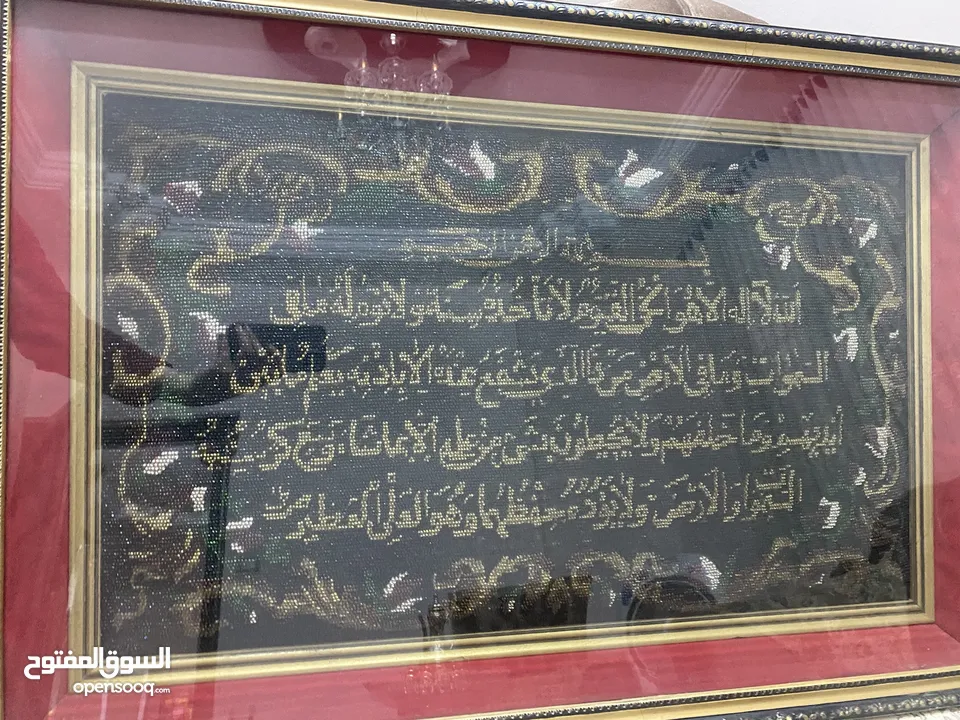 بسم الله الرحمن الرحيم
الله لا اله الا هو الحي القيوم لا تأخذه سنة ولا نوم له ما في
السموات وما في الارض من ذا الذي يشفع عنده الا باذنه يعلم ما بين
أيديهم وما خلفهم ولا يحيطون بشيء من علمه الا بما شاء وسع كرسيه
السموات والارض ولا يؤده حفظهما وهو العلي العظيم
السوق المفتوح
opensooq.com